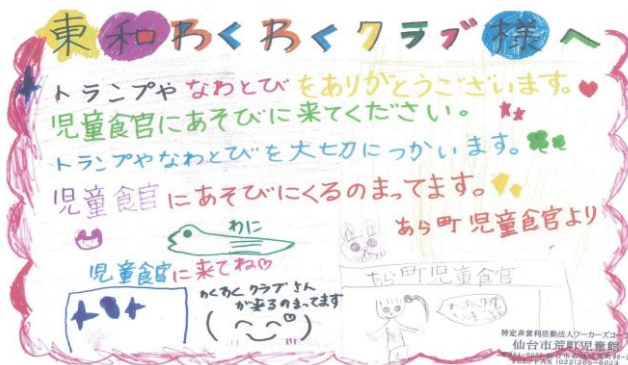 東和わくわくクラブ様へ
トランプやなわとびをありがとうございます。
児童食官にあそびに来てください。
トランプやなわとびを大切につかいます。
児童食官にあそびにくるのまってます。
あら町児童食官より
わに
児童食官に来てね♡
わくわくクラブさん
が来るのまってます
あら町児童食官
特定非営利活動法人ワーカーズコープ
仙台市荒町児童館